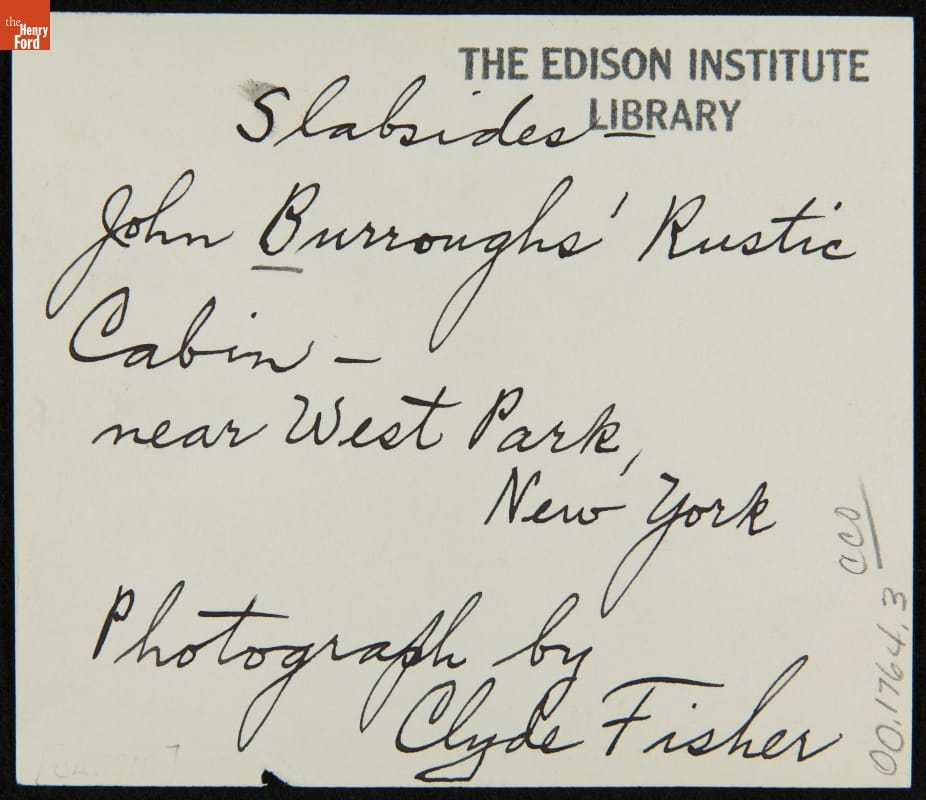 the
Henry
Ford
THE EDISON INSTITUTE
LIBRARY
Slabsides —
John Burroughs' Rustic
Cabin —
near West Park,
New York
Photograph by
Clyde Fisher
00.1764.3